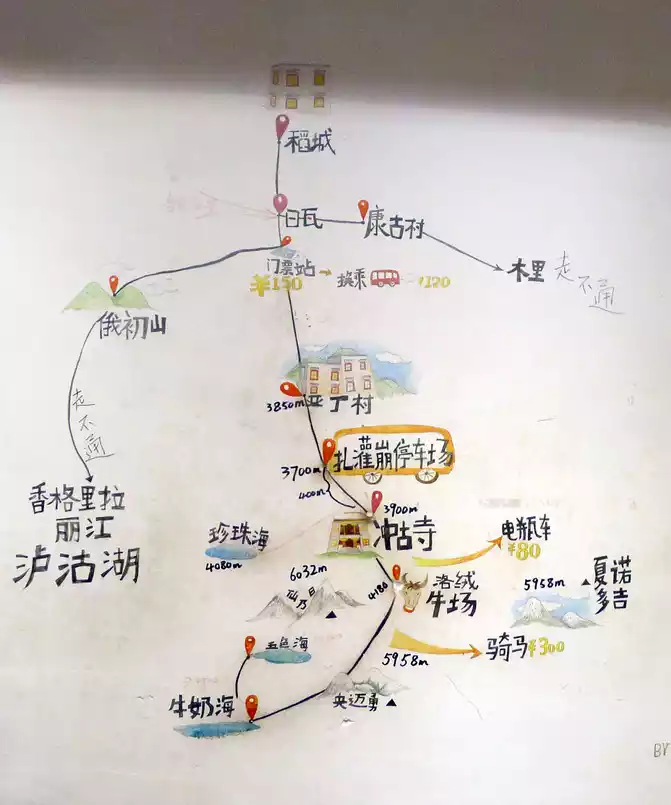 稻城
日瓦
康古村
木里
走不通
门票站
¥150
→
换乘
¥120
俄初山
走不通
香格里拉
丽江
泸沽湖
3850m
亚丁村
扎灌崩停车场
3700m
400m
3900m
冲古寺
珍珠海
4080m
电瓶车
¥80
6032m
仙乃日
4180
洛绒
牛场
5958m
夏诺
多吉
5958m
骑马¥300
五色海
牛奶海
央迈勇
BY